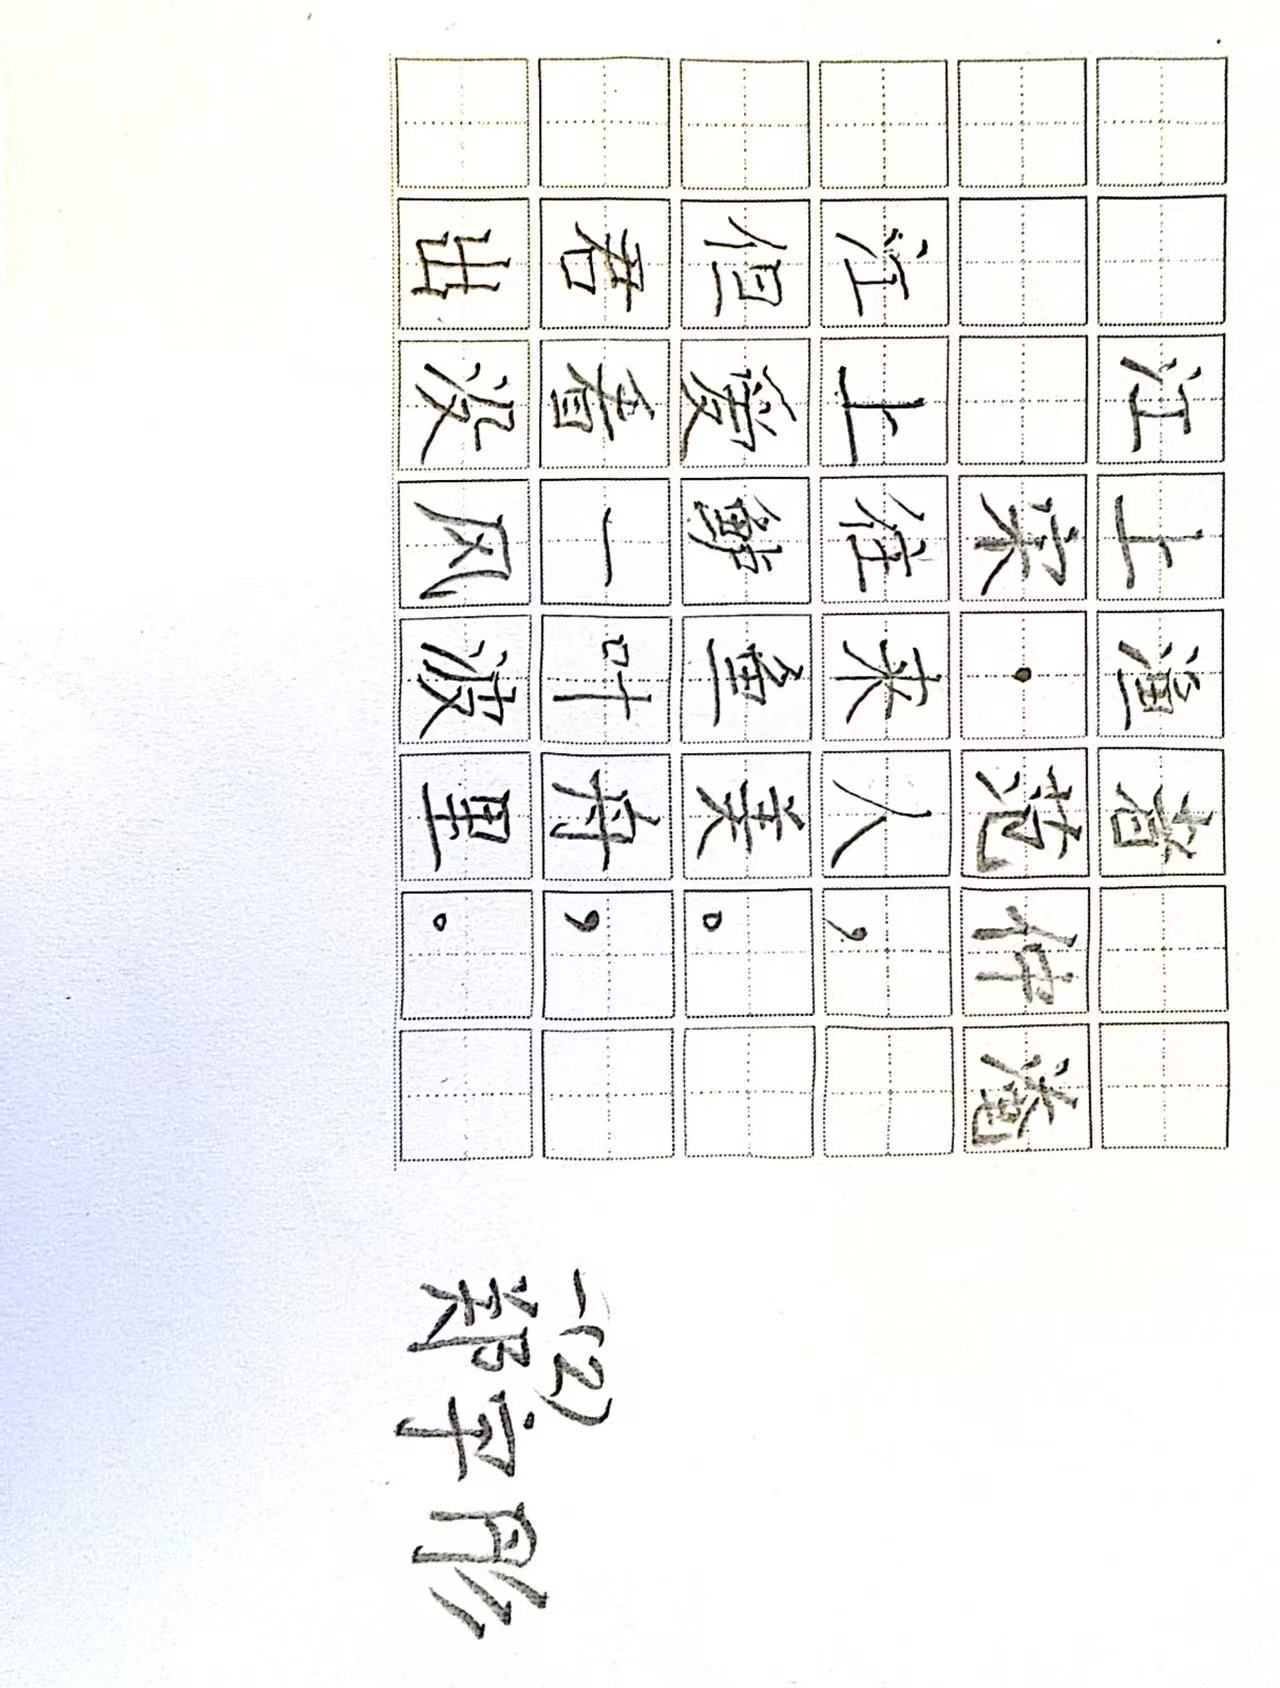 江上渔者
宋·范仲淹
江上往来人，
但爱鲈鱼美。
君看一叶舟，
出没风波里。
一(2)
郑宇彤